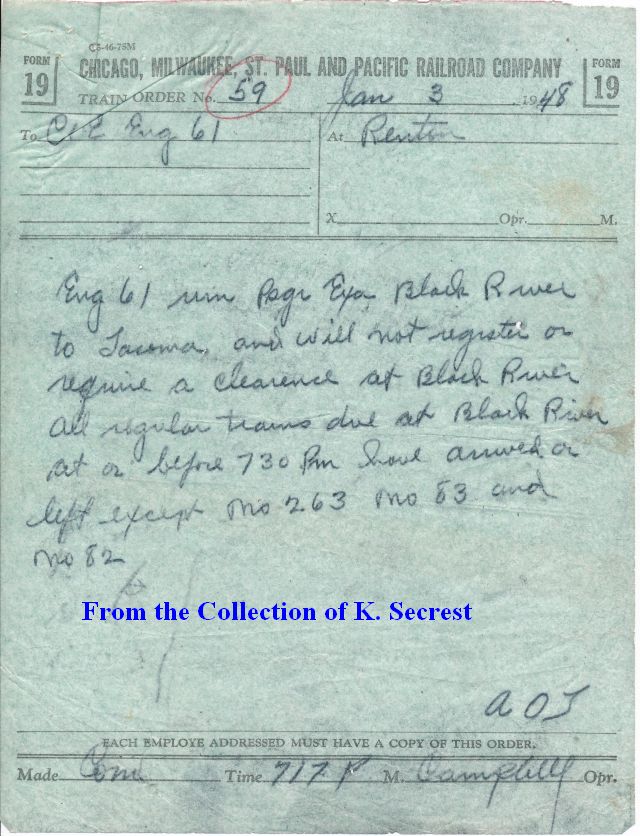 C5-46-75M
FORM 19
CHICAGO, MILWAUKEE, ST. PAUL AND PACIFIC RAILROAD COMPANY
FORM 19
TRAIN ORDER No. 59 Jan 3 1948
To C&E Eng 61 At Renton
X Opr. M.
Eng 61 run Psgr Exa Black River
to Tacoma and will not register or
require a clearence at Black River
All regular trains due at Black River
at or before 730 Pm have arrived or
left except No 263 No 83 and
No 82
From the Collection of K. Secrest
A O J
EACH EMPLOYE ADDRESSED MUST HAVE A COPY OF THIS ORDER.
Made Com Time 717 P M. Campbell Opr.